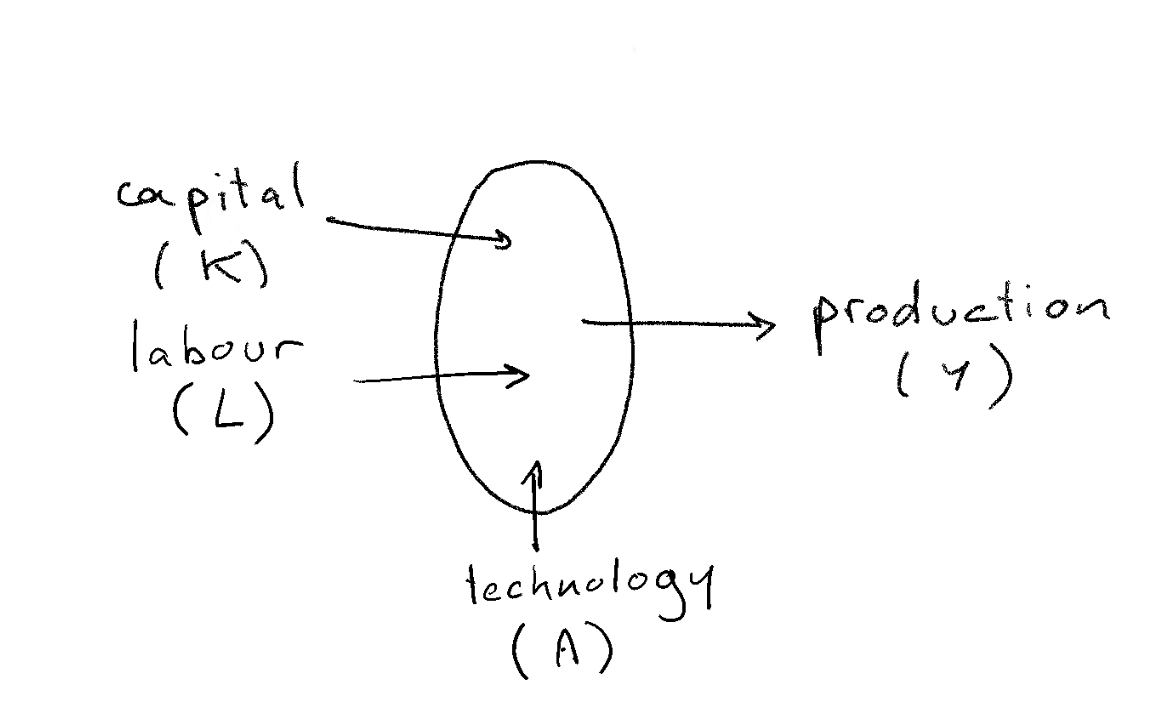 capital
(K)
labour
(L)
production
(Y)
technology
(A)